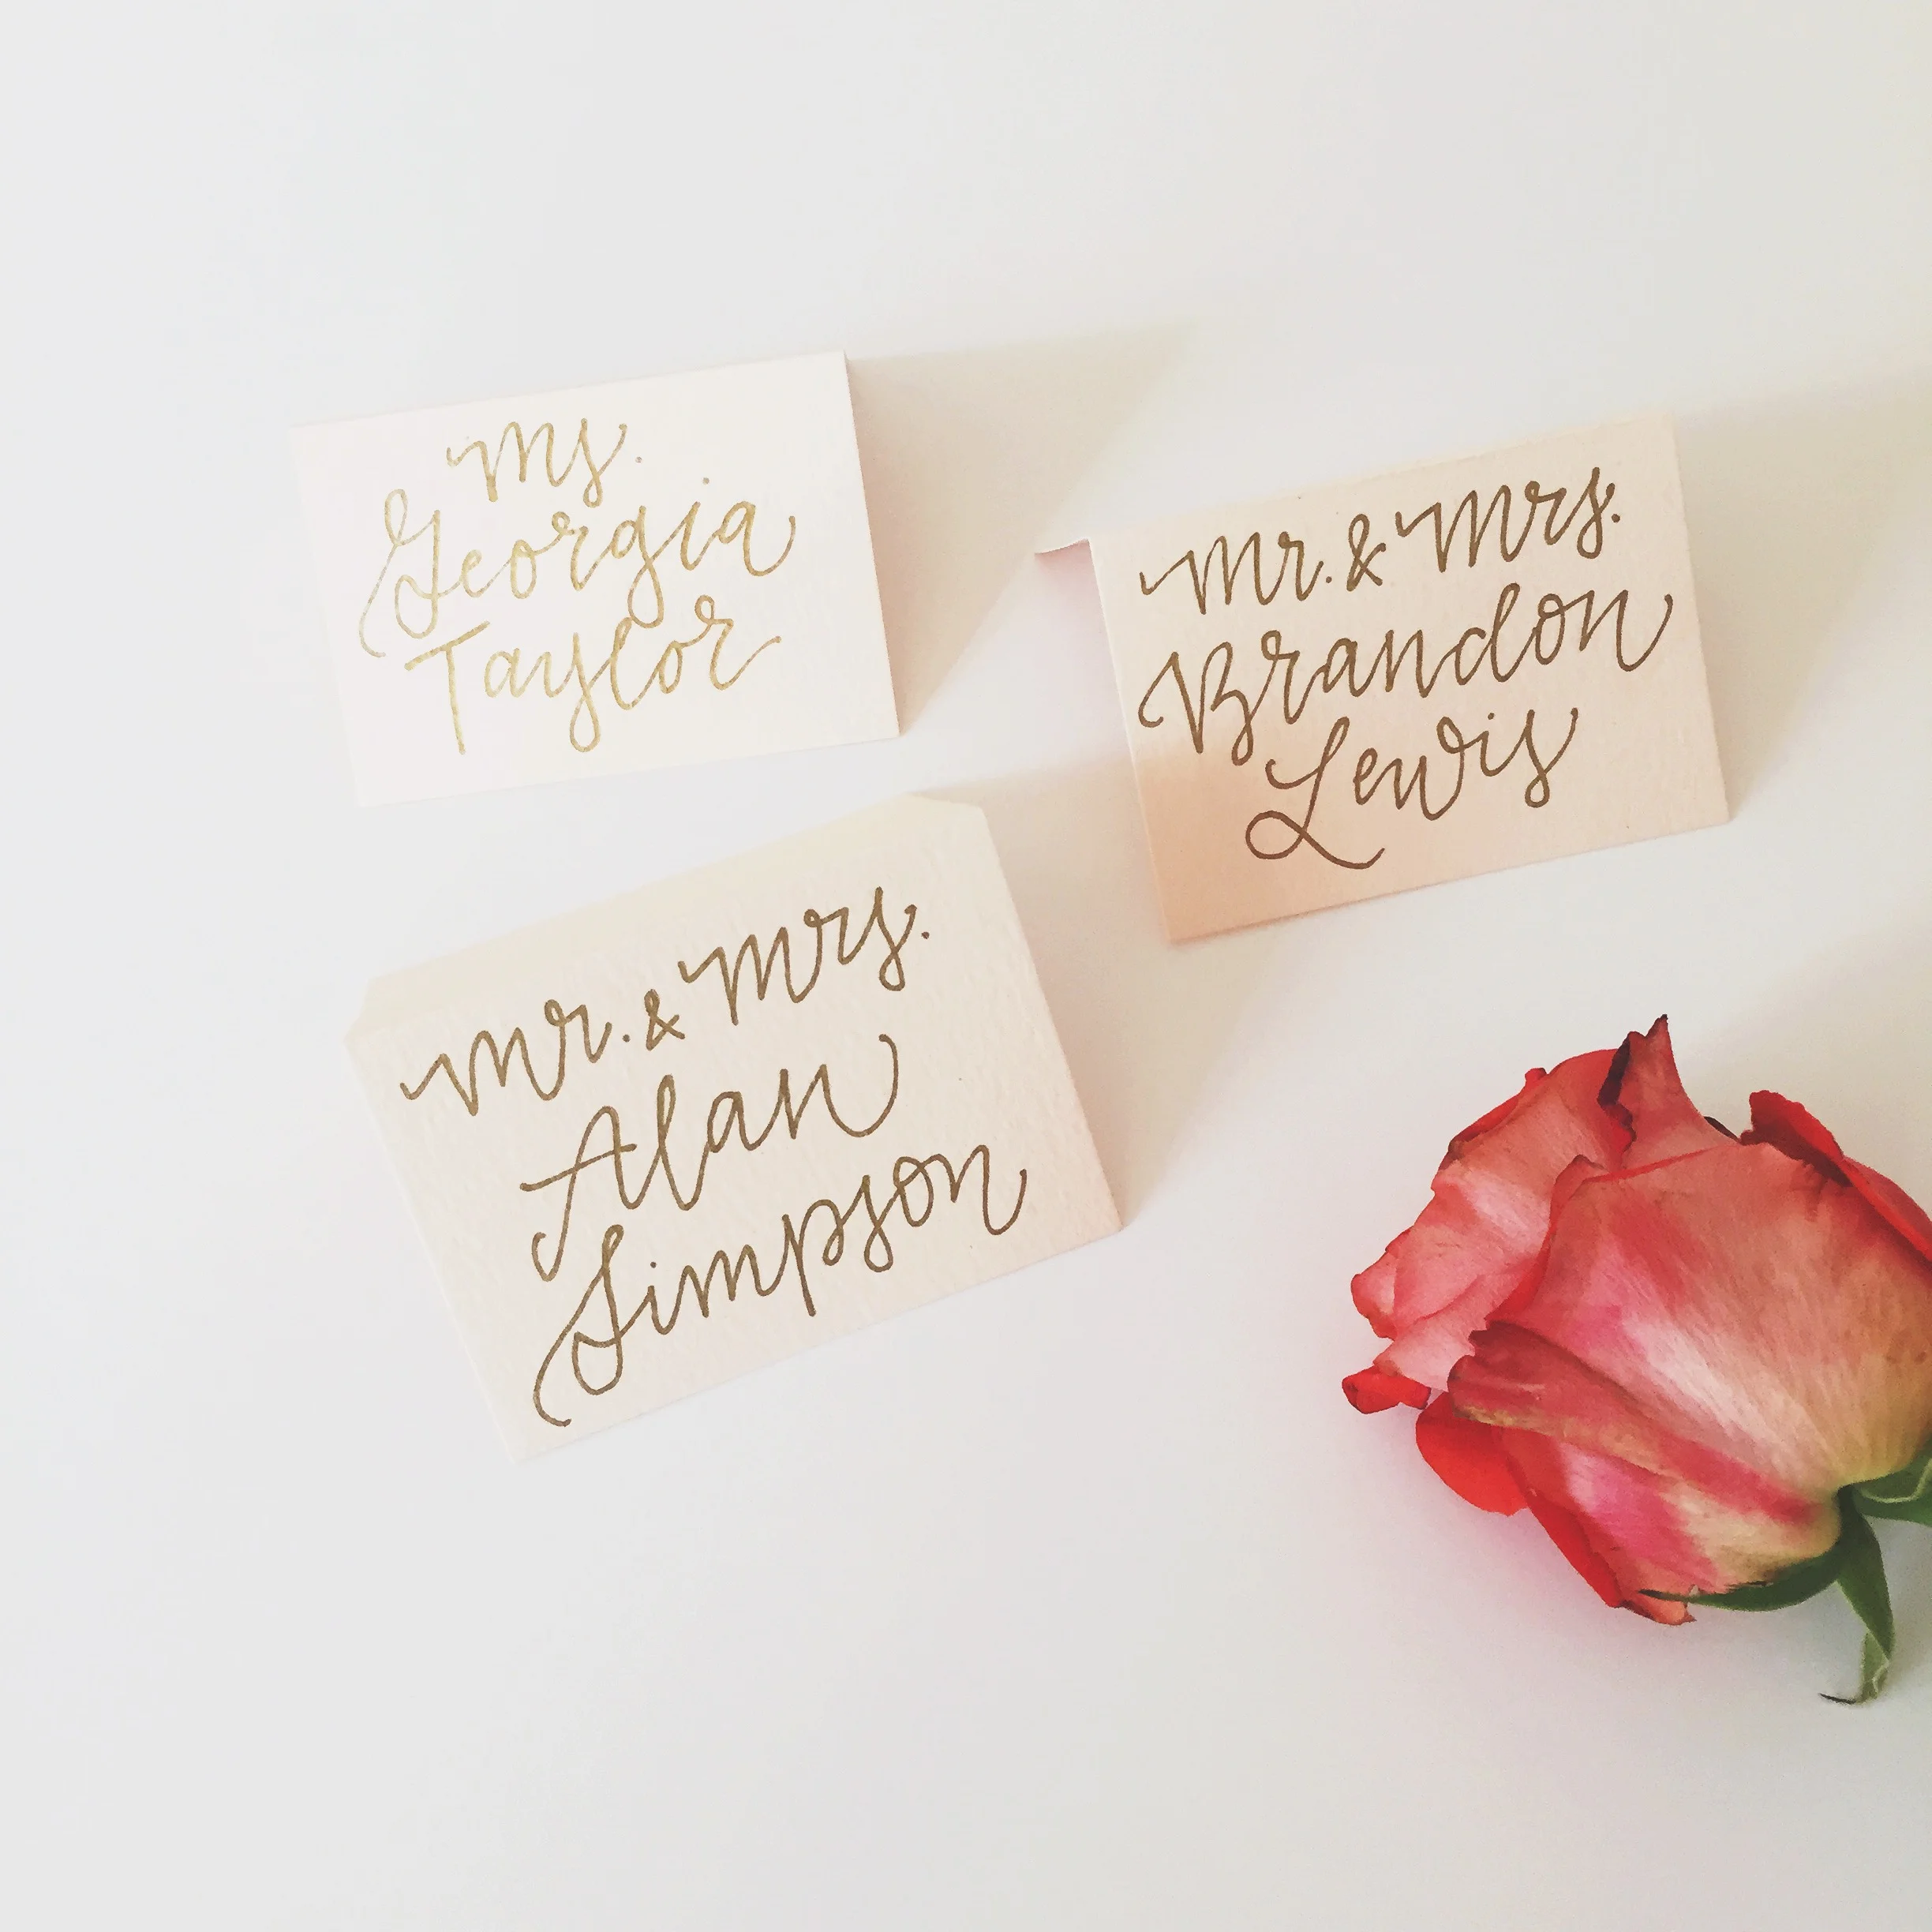 Ms.
Georgia
Taylor
Mr. & Mrs.
Brandon
Lewis
Mr. & Mrs.
Alan
Simpson